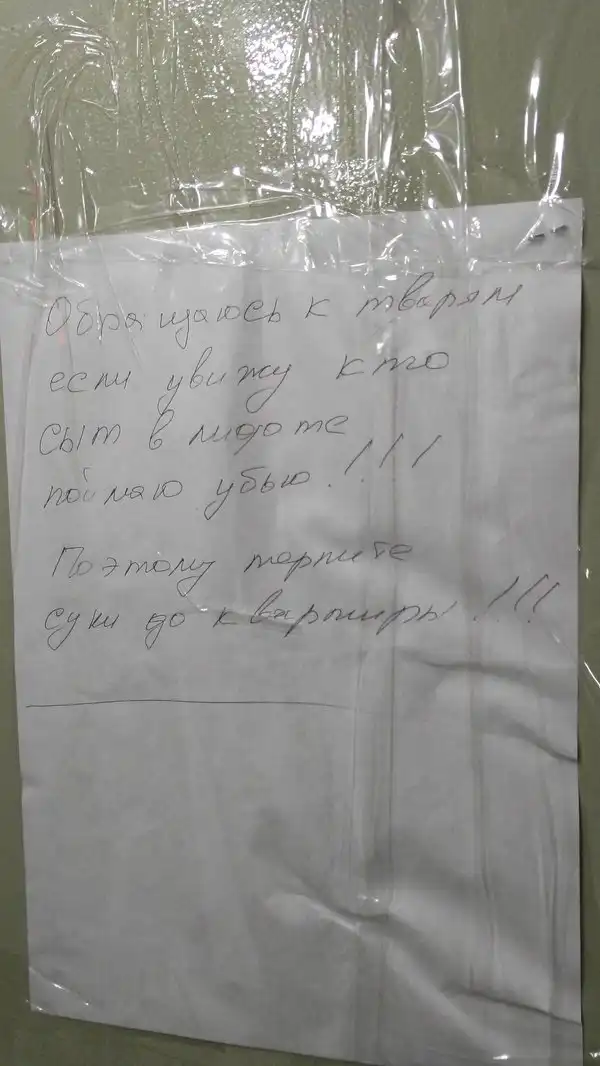 Обращаюсь к тварям
если увижу кто
сыт в лифоте
поймаю убью!!!
Поэтому терпите
суки до квартиры!!!